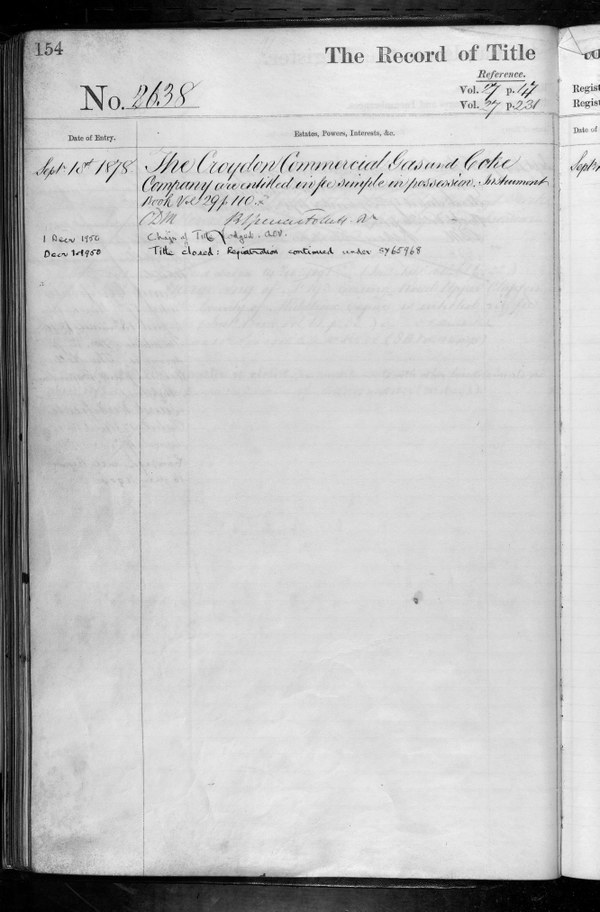 154
The Record of Title
Reference.
No. 2638
Vol. 27 p. 47
Vol. 37 p. 231
Date of Entry.
Estates, Powers, Interests, &c.
Sept 1878
The Croydon Commercial Gas and Coke
Company are entitled in fee simple in possession. Instrument
Book Vol 29 p 110.
1 Decr 1950
of Title
Decr 1 1950
Title closed: Registration continued under SY65968
Regist
Regist
Date of
Sept